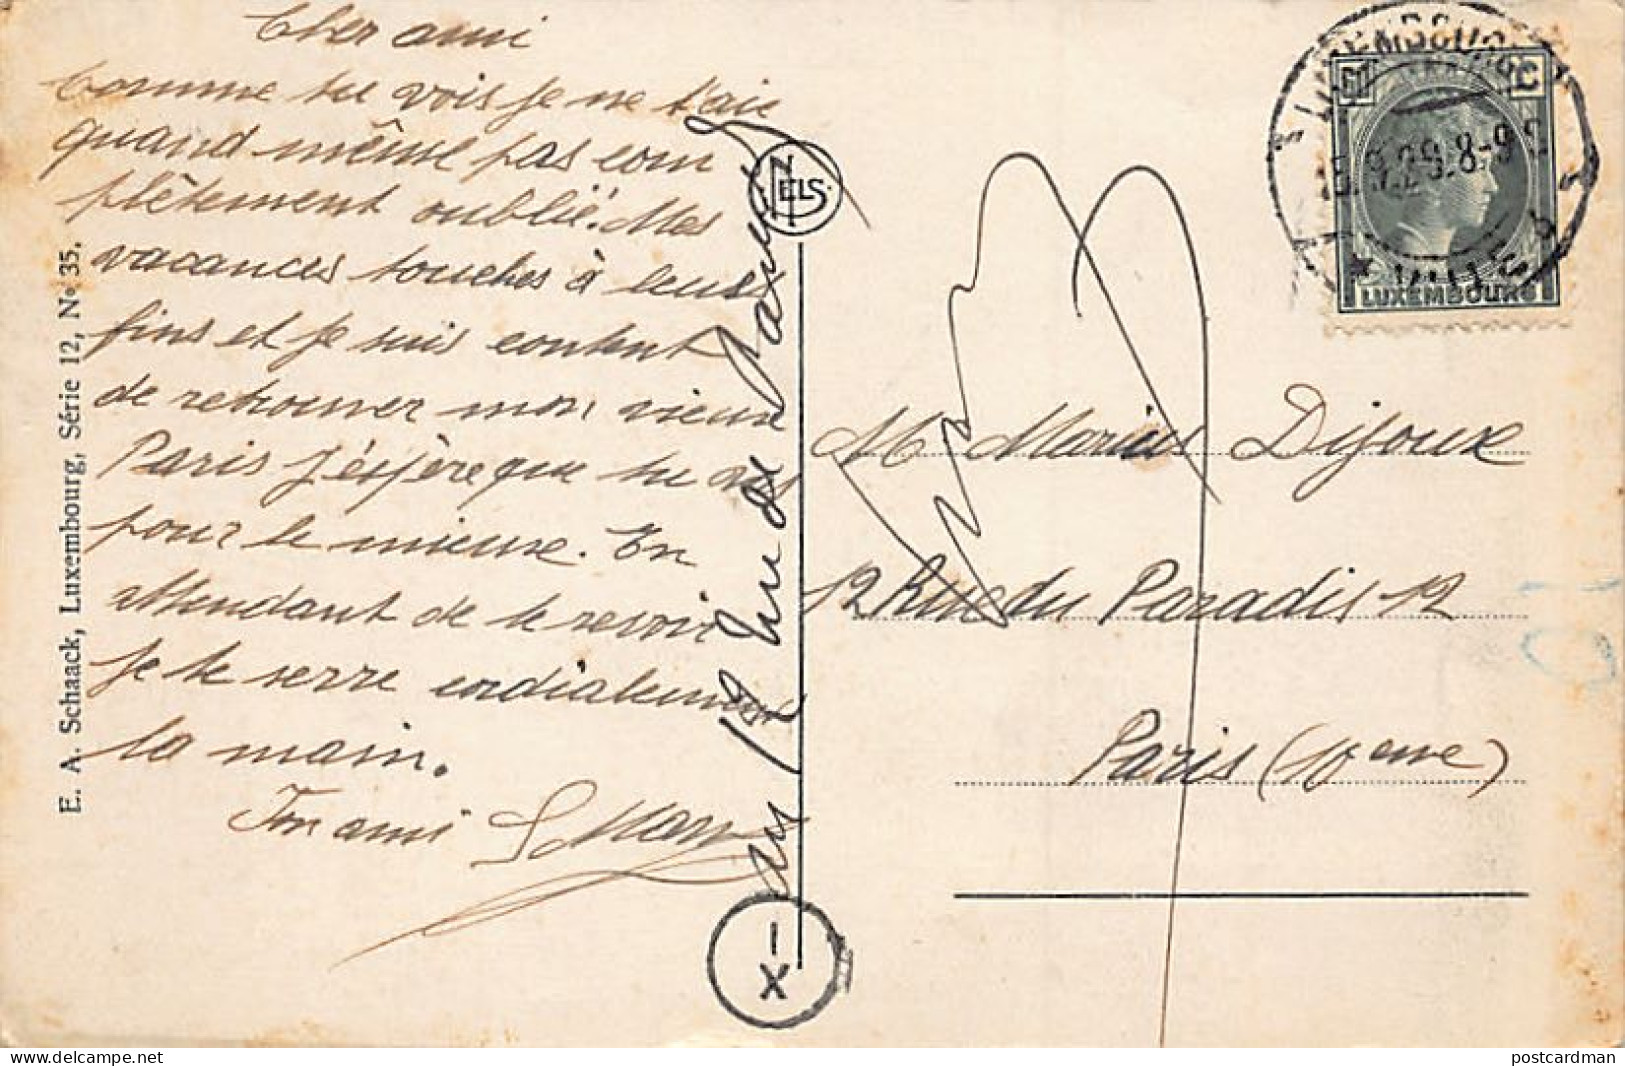 Cher ami
Comme tu vois je ne t'aie
quand même pas com
plètement oublié. Mes
vacances touches à leurs
fins et je suis content
de retrouver mon vieux
Paris J'éspère que tu vas
pour le mieux. En
attendant de te revoir
je te serre cordialement
la main.
Ton ami
E. A. Schaack, Luxembourg, Série 12, No 35.
NELS
12 rue de
IX
LUXEMBOURG
VILLE
8-9
C
LUXEMBOURG
M Marius Dijoux
12 Rue du Paradis 12
Paris (10eme)
delcampe.net
postcardman